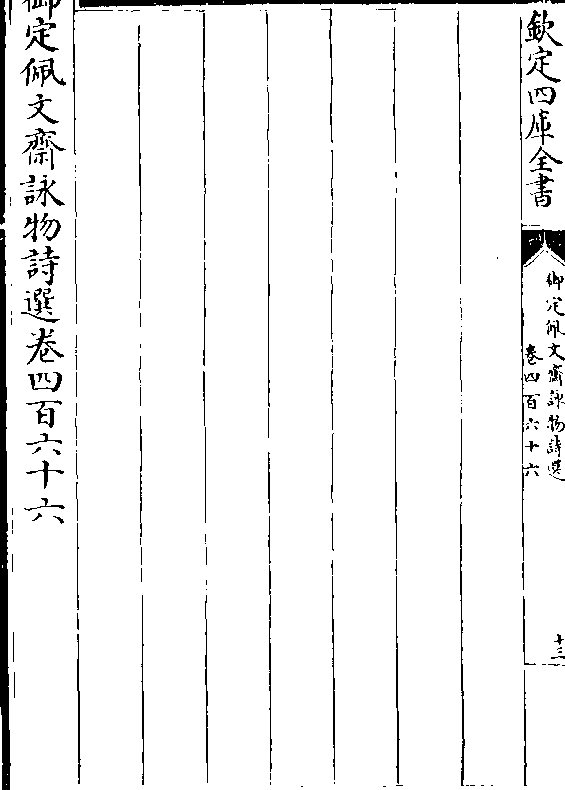 欽定四庫全書
御定佩文齋詠物詩選
卷四百六十六
十三
御定佩文齋詠物詩選卷四百六十六